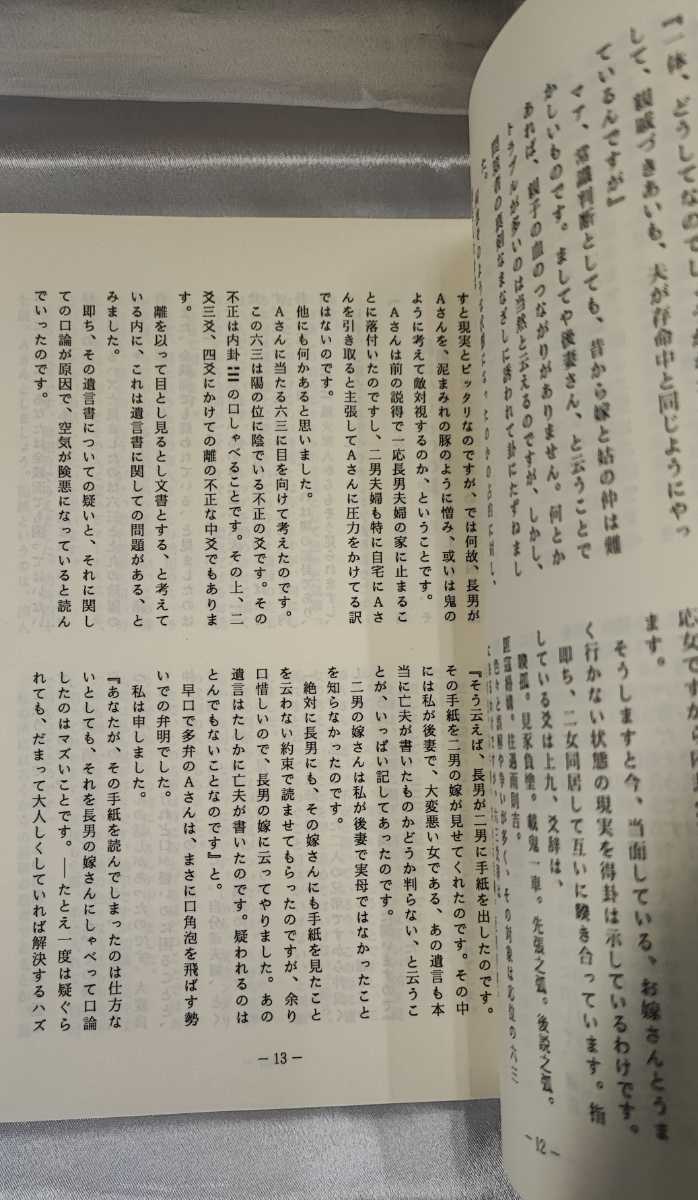 『一体、どうしてなのでしょうか
して、親戚づきあいも、夫が存命中と同じようにやっ
ているんですが』
マア、常識判断としても、昔から嫁と姑の仲は難
かしいものです。ましてや後妻さん、と云うことで
あれば、親子の血のつながりがありません。何とか
トラブルが多いのは当然と云えるのですが、しかし、
相談者の真剣なまなざしに誘われて卦にたずねまし
た。
応女ですから
ます。
そうしますと今、当面している、お嫁さんとうま
く行かない状態の現実を得卦は示しているわけです。
即ち、二女同居して互いに睽き合っています。指
している爻は上九、爻辞は、
睽孤。見豕負塗。載鬼一車。先張之弧。後説之弧。
匪寇婚媾。往遇雨則吉。
―12―
すと現実とピッタリなのですが、では何故、長男が
Aさんを、泥まみれの豚のように憎み、或いは鬼の
ように考えて敵対視するのか、ということです。
Aさんは前の説得で一応長男夫婦の家に止まるこ
とに落付いたのですし、二男夫婦も特に自宅にAさ
んを引き取ると主張してAさんに圧力をかけてる訳
ではないのです。
他にも何かあると思いました。
Aさんに当たる六三に目を向けて考えたのです。
この六三は陽の位に陰でいる不正の爻です。その
不正は内卦☱の口しゃべることです。その上、二
爻三爻、四爻にかけての離の不正な中爻でもありま
す。
離を以って目とし見るとし文書とする、と考えて
いる内に、これは遺言書に関しての問題がある、と
みました。
即ち、その遺言書についての疑いと、それに関し
ての口論が原因で、空気が険悪になっていると読ん
でいったのです。
『そう云えば、長男が二男に手紙を出したのです。
その手紙を二男の嫁が見せてくれたのです。その中
には私が後妻で、大変悪い女である、あの遺言も本
当に亡夫が書いたものかどうか判らない、と云うこ
とが、いっぱい記してあったのです。
二男の嫁さんは私が後妻で実母ではなかったこと
を知らなかったのです。
絶対に長男にも、その嫁さんにも手紙を見たこと
を云わない約束で読ませてもらったのですが、余り
口惜しいので、長男の嫁に云ってやりました。あの
遺言はたしかに亡夫が書いたのです。疑われるのは
とんでもないことなのです』と。
早口で多弁のAさんは、まさに口角泡を飛ばす勢
いでの弁明でした。
私は申しました。
『あなたが、その手紙を読んでしまったのは仕方な
いとしても、それを長男の嫁さんにしゃべって口論
したのはマズいことです。――たとえ一度は疑ぐら
れても、だまって大人しくしていれば解決するハズ
―13―